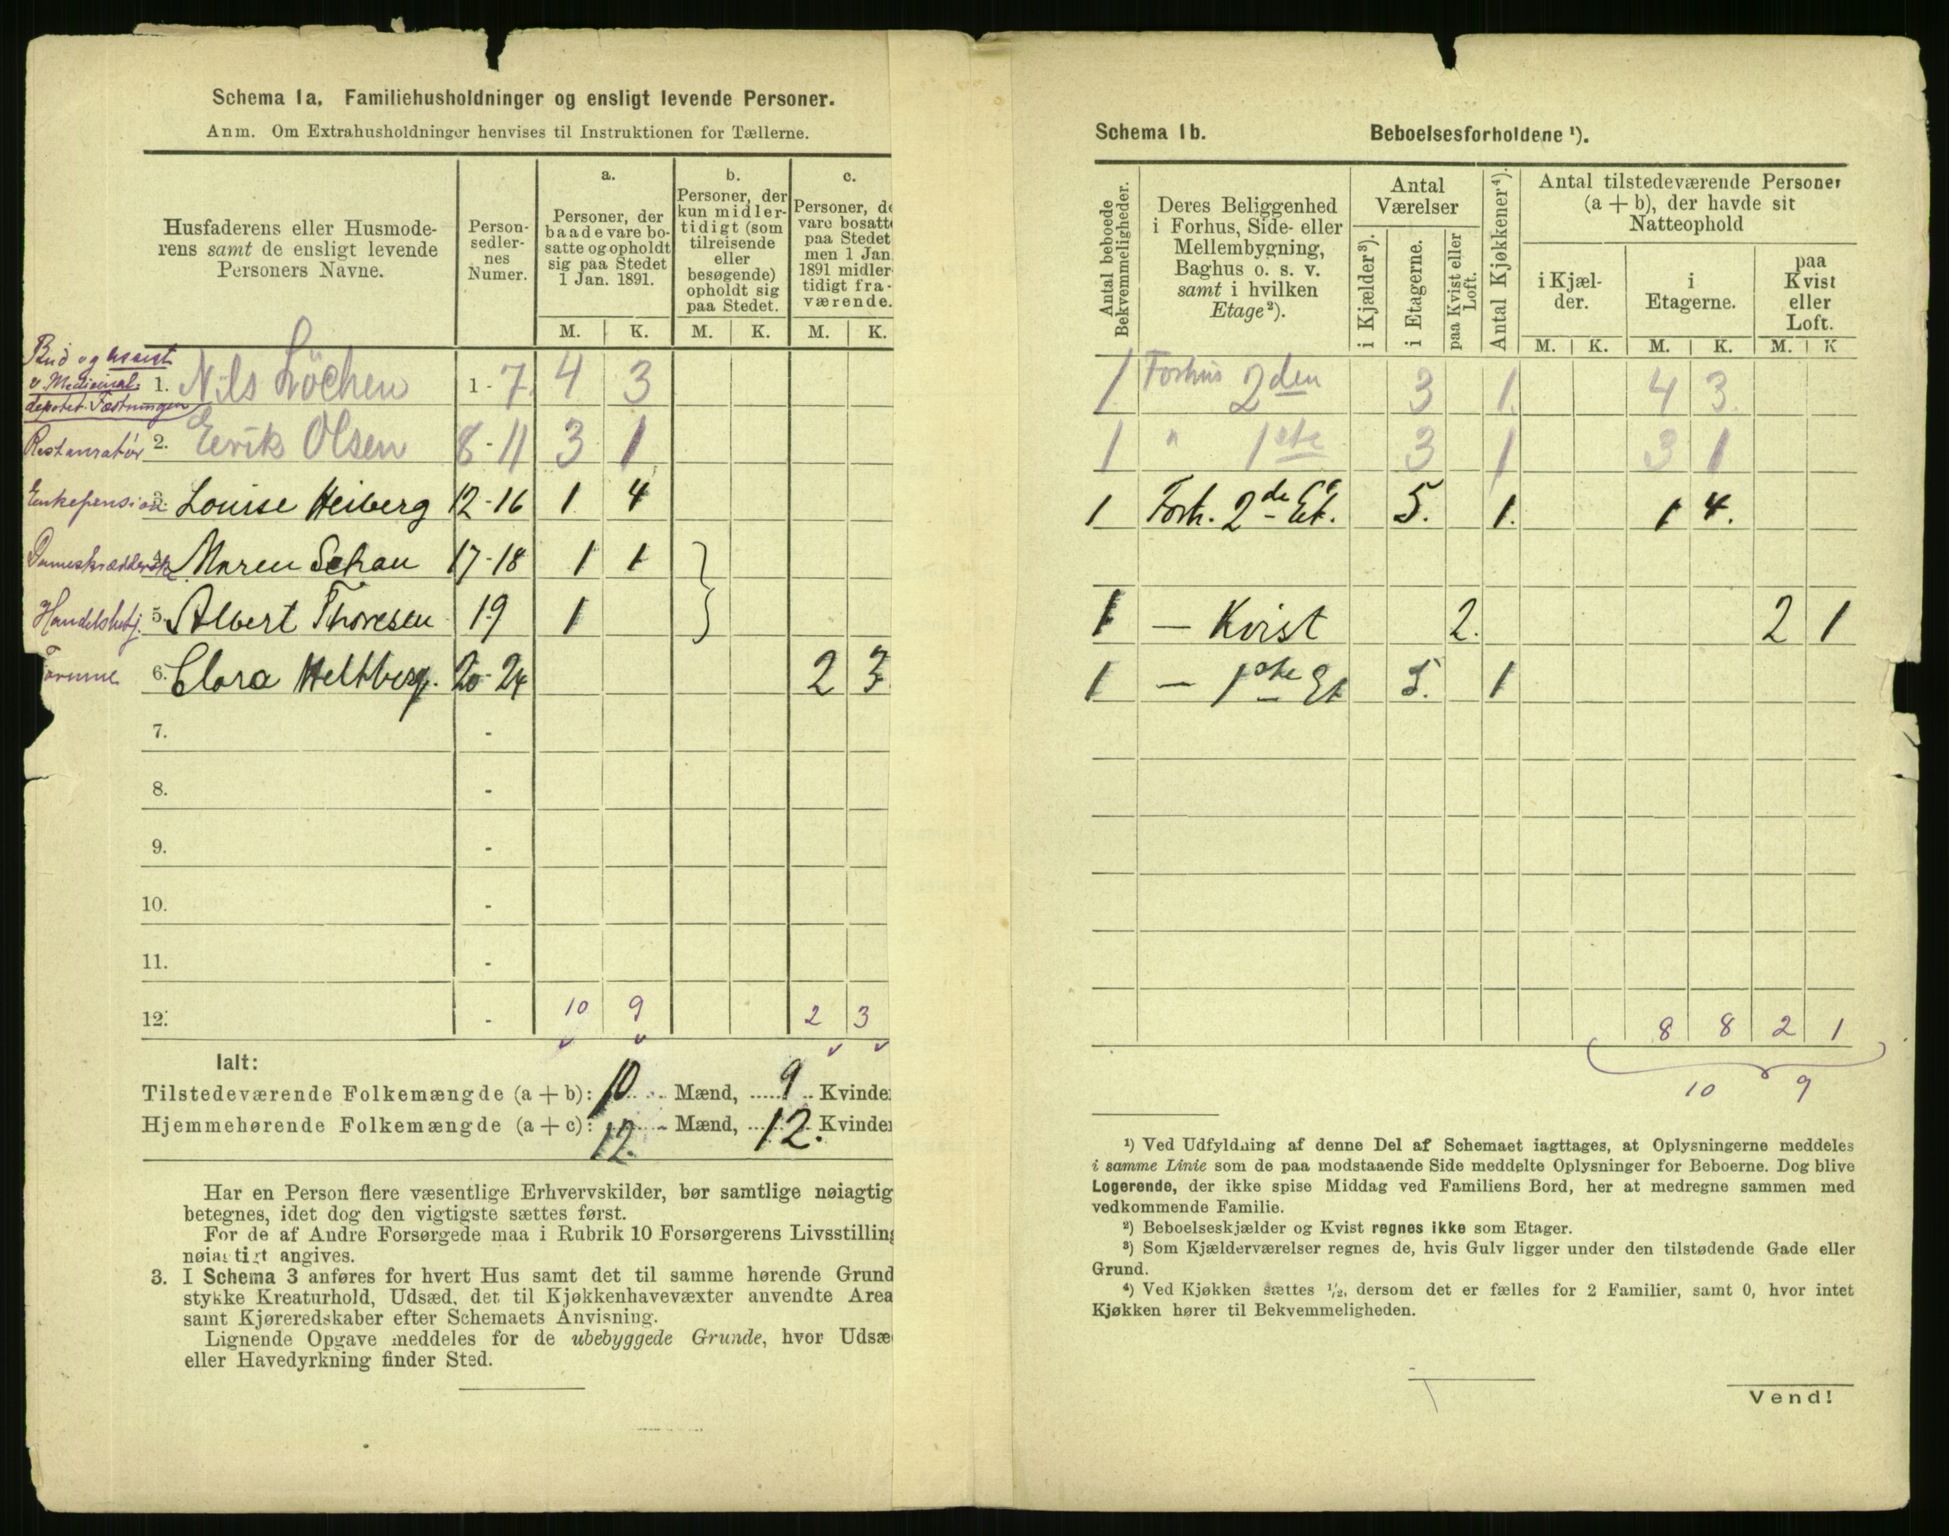 Schema 1a. Familiehusholdninger og ensligt levende Personer.
Anm. Om Extrahusholdninger henvises til Instruktionen for Tællerne.
Husfaderens eller Husmode-
rens samt de ensligt levende
Personers Navne.
Person-
sedler-
nes
Numer.
a.
Personer, der
baade vare bo-
satte og opholdt
sig paa Stedet
1 Jan. 1891.
b.
Personer, der
kun midler-
tidigt (som
tilreisende
eller
besøgende)
opholdt sig
paa Stedet.
c.
Personer, de
vare bosatte
paa Stedet
men 1 Jan.
1891 midler
tidigt fra-
værende.
M. K. M. K. M. K.
Bud og assist
v. Medicinal-
depotet. Fæstningen
1. Nils Löchen 1-7 4 3
Restauratør 2. Eerik Olsen 8-11 3 1
Enkepension 3. Louise Heiberg 12-16 1 4
Dameskrædderske 4. Maren Schau 17-18 1 1
Handelsbetj. 5. Albert Thoresen 19 1
6. Clara Heltberg. 20-24 2 3
7. -
8. -
9. -
10. -
11. -
12. - 10 9 2 3
Ialt:
Tilstedeværende Folkemængde (a + b): 10 Mænd, 9 Kvinder
Hjemmehørende Folkemængde (a + c): 12. Mænd, 12. Kvinder
Har en Person flere væsentlige Erhvervskilder, bør samtlige nøiagtig
betegnes, idet dog den vigtigste sættes først.
For de af Andre Forsørgede maa i Rubrik 10 Forsørgerens Livsstilling
nøiagtigt angives.
3. I Schema 3 anføres for hvert Hus samt det til samme hørende Grund
stykke Kreaturhold, Udsæd, det til Kjøkkenhavevæxter anvendte Area
samt Kjøreredskaber efter Schemaets Anvisning.
Lignende Opgave meddeles for de ubebyggede Grunde, hvor Udsæ
eller Havedyrkning finder Sted.
Schema 1b. Beboelsesforholdene ¹).
Antal beboede
Bekvemmeligheder.
Deres Beliggenhed
i Forhus, Side- eller
Mellembygning,
Baghus o. s. v.
samt i hvilken
Etage²).
Antal
Værelser
i Kjælder³).
i Etagerne.
paa Kvist eller
Loft.
Antal Kjøkkener⁴).
Antal tilstedeværende Personer
(a + b), der havde sit
Natteophold
i Kjæl-
der.
i
Etagerne.
paa
Kvist
eller
Loft.
M. K. M. K. M. K
1 Forhus 2den 3 1. 4 3.
1 " 1ste 3 1 3 1
1 Forh. 2de Et. 5. 1. 1 4.
1 — Kvist 2. 2 1
1 — 1ste Et 5. 1
8 8 2 1
10 9
¹) Ved Udfyldning af denne Del af Schemaet iagttages, at Oplysningerne meddeles
i samme Linie som de paa modstaaende Side meddelte Oplysninger for Beboerne. Dog blive
Logerende, der ikke spise Middag ved Familiens Bord, her at medregne sammen med
vedkommende Familie.
²) Beboelseskjælder og Kvist regnes ikke som Etager.
³) Som Kjælderværelser regnes de, hvis Gulv ligger under den tilstødende Gade eller
Grund.
⁴) Ved Kjøkken sættes ¹/₂, dersom det er fælles for 2 Familier, samt 0, hvor intet
Kjøkken hører til Bekvemmeligheden.
Vend!